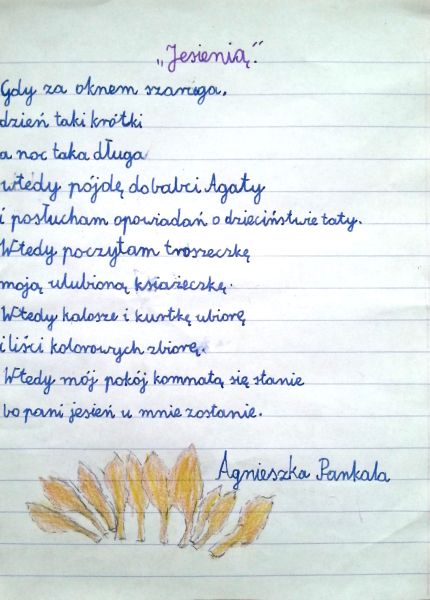 „Jesienią."
Gdy za oknem szaruga,
dzień taki krótki
a noc taka długa
wtedy pójdę do babci Agaty
i posłucham opowiadań o dzieciństwie taty.
Wtedy poczytam troszeczkę
moją ulubioną książeczkę.
Wtedy kalosze i kurtkę ubiorę
i liści kolorowych zbiorę.
Wtedy mój pokój komnatą się stanie
bo pani jesień u mnie zostanie.
Agnieszka Pankala